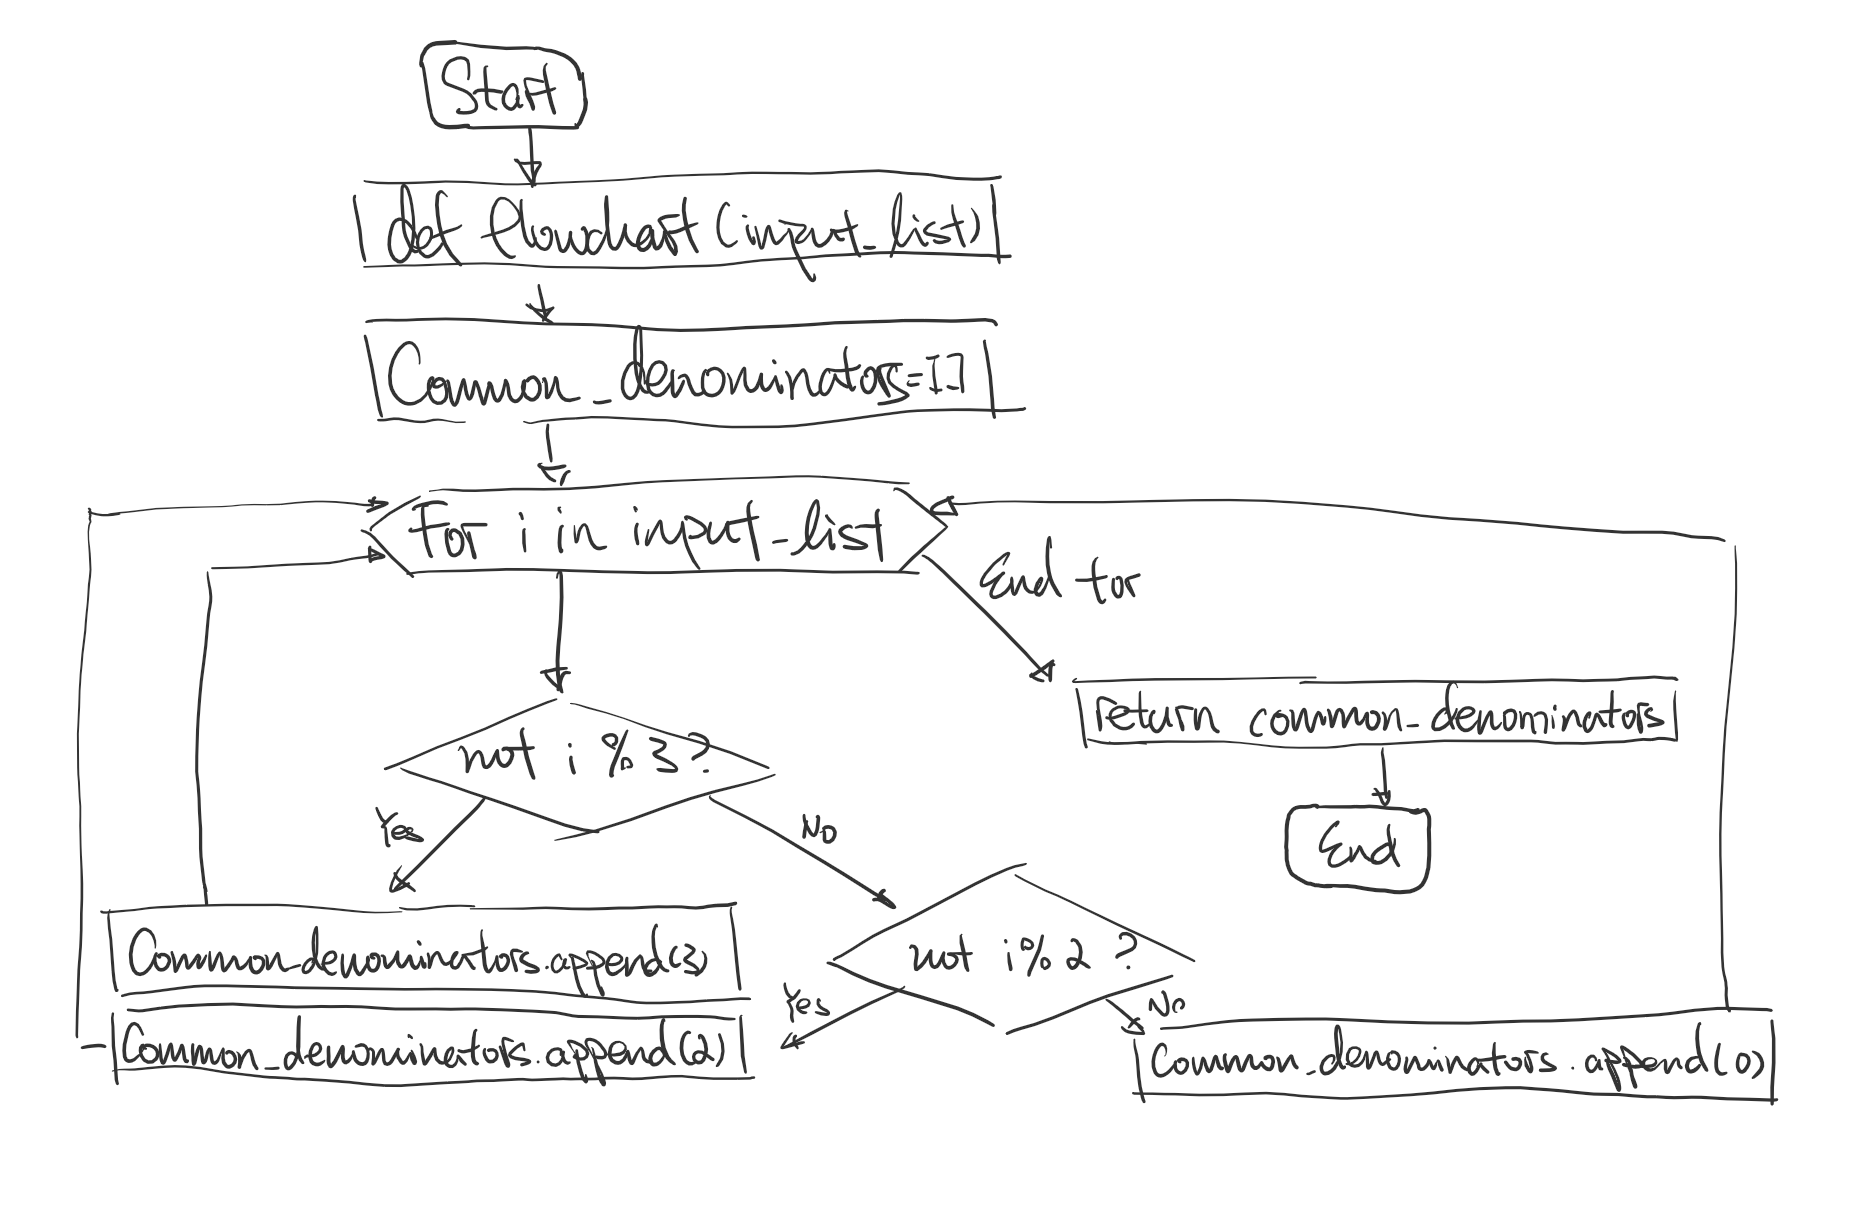 Start
def flowchart (input_list)
Common_denominators=[]
For i in input_list
End for
return common_denominators
End
not i % 3 ?
Yes
No
Common_denominators.append(3)
not i % 2 ?
Yes
No
Common_denominators.append(2)
Common_denominators.append(0)